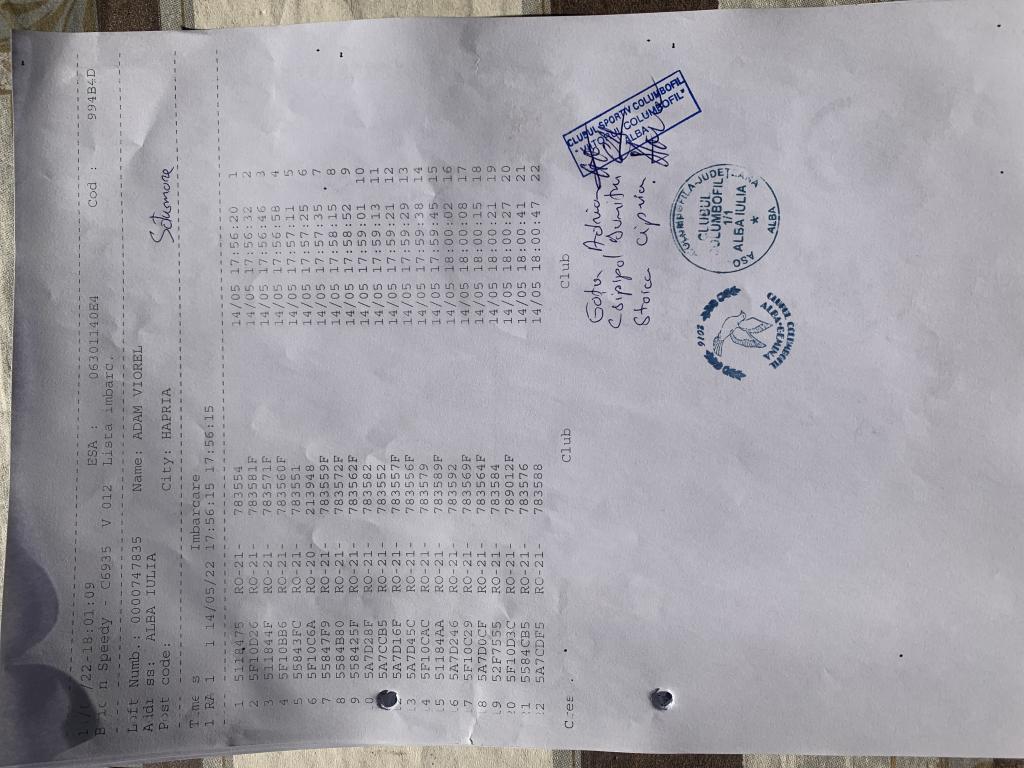 /22-18:01:09 ESA : 06301140E4 Cod : 994B4D
Speedy - C6935 V 012 Lista imbarc.
Loft Numb.: 0000747835 Name: ADAM VIOREL
ALBA IULIA City: HAPRIA
Post code: Satumare
Imbarcare
1 RA 1 1 14/05/22 17:56:15 17:56:15
1 511B475 RO-21- 783554 14/05 17:56:20 1
2 5F10D26 RO-21- 783581F 14/05 17:56:32 2
3 511844F RO-21- 783571F 14/05 17:56:46 3
4 5F10BB6 RO-21- 783560F 14/05 17:56:58 4
5 55843FC RO-21- 783551 14/05 17:57:11 5
6 5F10C6A RO-20- 213948 14/05 17:57:25 6
7 55847F9 RO-21- 783559F 14/05 17:57:35 7
8 5584B80 RO-21- 783572F 14/05 17:58:15 8
9 558425F RO-21- 783562F 14/05 17:58:52 9
0 5A7D28F RO-21- 783582 14/05 17:59:01 10
5A7CCB5 RO-21- 783552 14/05 17:59:13 11
5A7D16F RO-21- 783557F 14/05 17:59:21 12
3 5A7D45C RO-21- 783556F 14/05 17:59:29 13
4 5F10CAC RO-21- 783579 14/05 17:59:38 14
5 51184AA RO-21- 783589F 14/05 17:59:45 15
6 5A7D246 RO-21- 783592 14/05 18:00:02 16
7 5F10C29 RO-21- 783569F 14/05 18:00:08 17
8 5A7D0CF RO-21- 783564F 14/05 18:00:15 18
9 52F7555 RO-21- 783584 14/05 18:00:21 19
0 5F10D3C RO-21- 789012F 14/05 18:00:27 20
1 5584CB5 RO-21- 783576 14/05 18:00:41 21
2 5A7CDF5 RO-21- 783588 14/05 18:00:47 22
Club Club
Stoica Ciprian
CLUBUL SPORTIV COLUMBOFIL
COLUMBOFIL"
ALBA
CLUBUL
COLUMBOFIL
11
ALBA IULIA
*
ASO
ALBA
CLUBUL COLUMBOFIL
ALBA GEMINA
2016